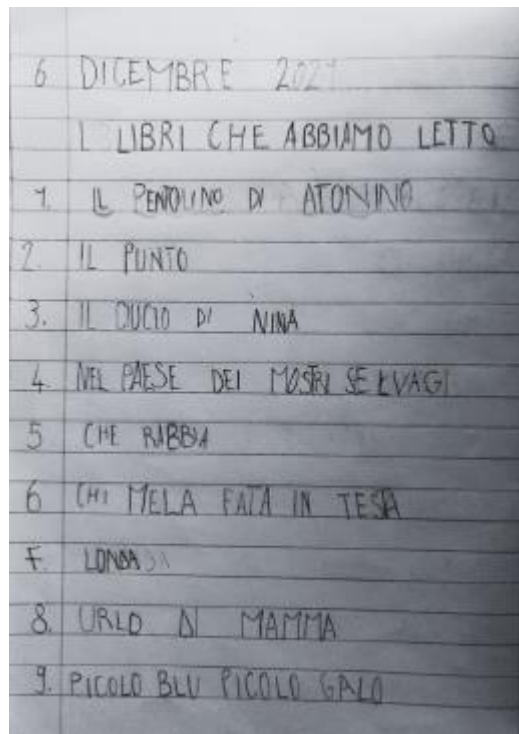 6 DICEMBRE 2021
I LIBRI CHE ABBIAMO LETTO
1. IL PENTOLINO DI ATONINO
2. IL PUNTO
3. IL DUCIO DI NINA
4 NEL PAESE DEI MOSTRI SELVAGI
5 CHE RABBIA
6 CHI MELA FATA IN TESTA
7. LONDA
8. URLO DI MAMMA
9. PICOLO BLU PICOLO GALO